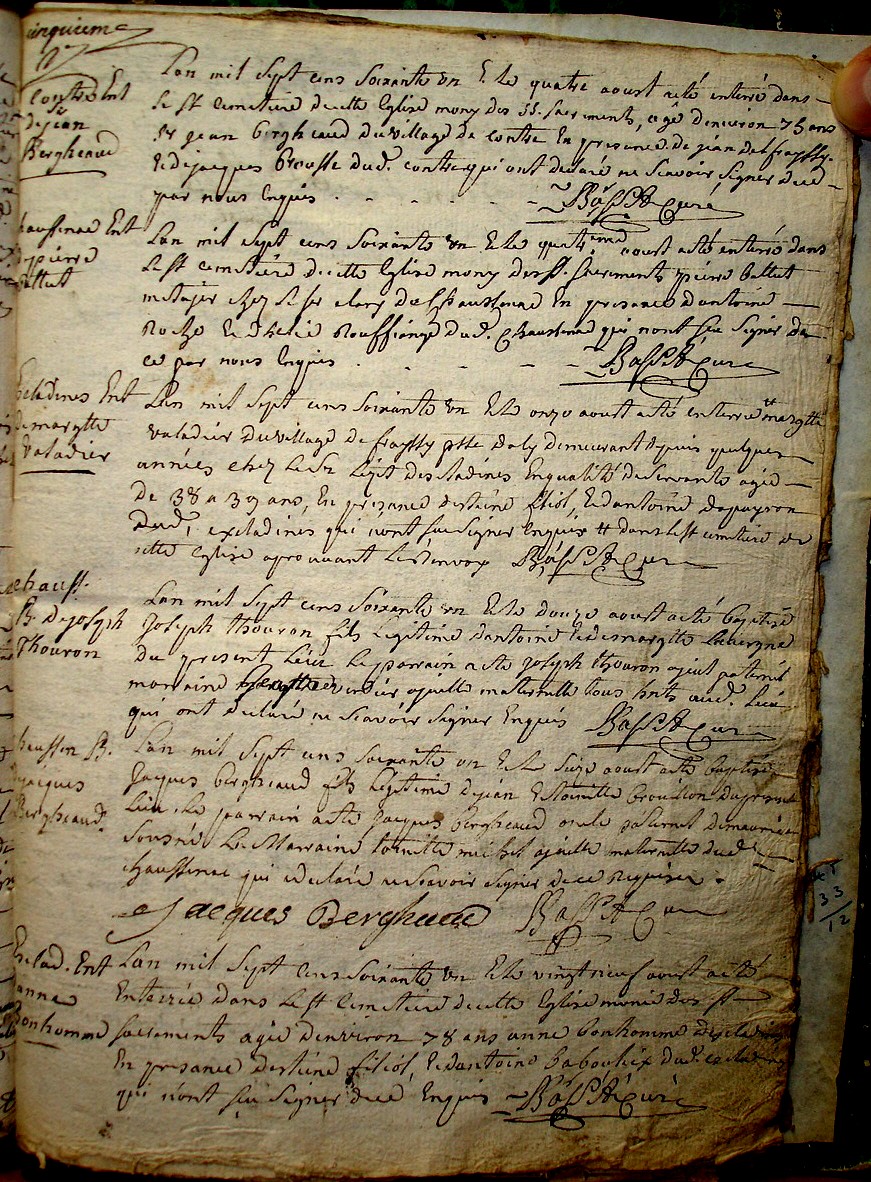 cinquieme
Contre Ent
de Sr
jean
Bergheaud
Lan mil sept cens soixante un E. le quatre aoust a eté enterré dans
le st Cemetière de cette Eglise muny des SS. sacrements, agé denviron 75 ans
Sr jean bergheaud du village de contre En presance de jean delfrayssy
Et de jacques brousse dud. contre qui ont declaré ne scavoir signer de ce
par nous Enquis - - - - - Bassit Curé
haussenac Ent
de pierre
Lan mil sept cens soixante un Et le quatrieme aoust a eté enterré dans
le st cemetière de cette Eglise muny des st. sacrements pierre
metajer chez le sr de chaussenac En presance dantoine
Et dud. Chaussenac qui nont sçu signer de
ce par nous Enquis - - - - Bassit Curé
Escladines Ent
de margtte
Valadier
Lan mil sept cens soixante un Et le onze aoust a eté enterrée # margtte
valadier du village de frayssy psse dally demeurant depuis quelques
années chez le Sr des cladines En qualité de servante agée
de 38 a 39 ans, En presance destiene filiol, Et dantoine
dud. escladines qui nont sçu signer enquis # dans le st cemetière de
cette Eglise aprouvant le renvoy Bassit Curé
chauss.
B. de joseph
Thouron
Lan mil sept cens soixante un Et le douze aoust a eté baptisé
joseph thouron fils legitime dantoine Et de margtte
du present lieu le parrain a eté joseph thouron ajeul paternel
marraine ajeulle maternelle tous hnts aud. lieu
qui ont declaré ne scavoir signer Enquis Bassit Curé
haussen B.
de jacques
Bergheaud
Lan mil sept cens soixante un Et le seize aoust a eté baptisé
jacques bergheaud fils legitime de jean Et toinette du present
lieu. le parrain a eté jacques bergheaud oncle paternel
sousné La Marraine toinette michel ajeulle maternelle dud.
chaussenac qui a declaré ne scavoir signer de ce requise.
Jacques Bergheaud Bassit Curé
41
33
12
Esclad. Ent
anne
Bonhomme
Lan mil sept cens soixante un Et le vingt neuf aoust a eté
Enterrée dans le st Cemetière de cette Eglise munie des st
sacrements agée denviron 78 ans anne bonhomme descladines
En presance destiene filiol, Et dantoine dud. escladines
qui nont sçu signer de ce Enquis Bassit Curé